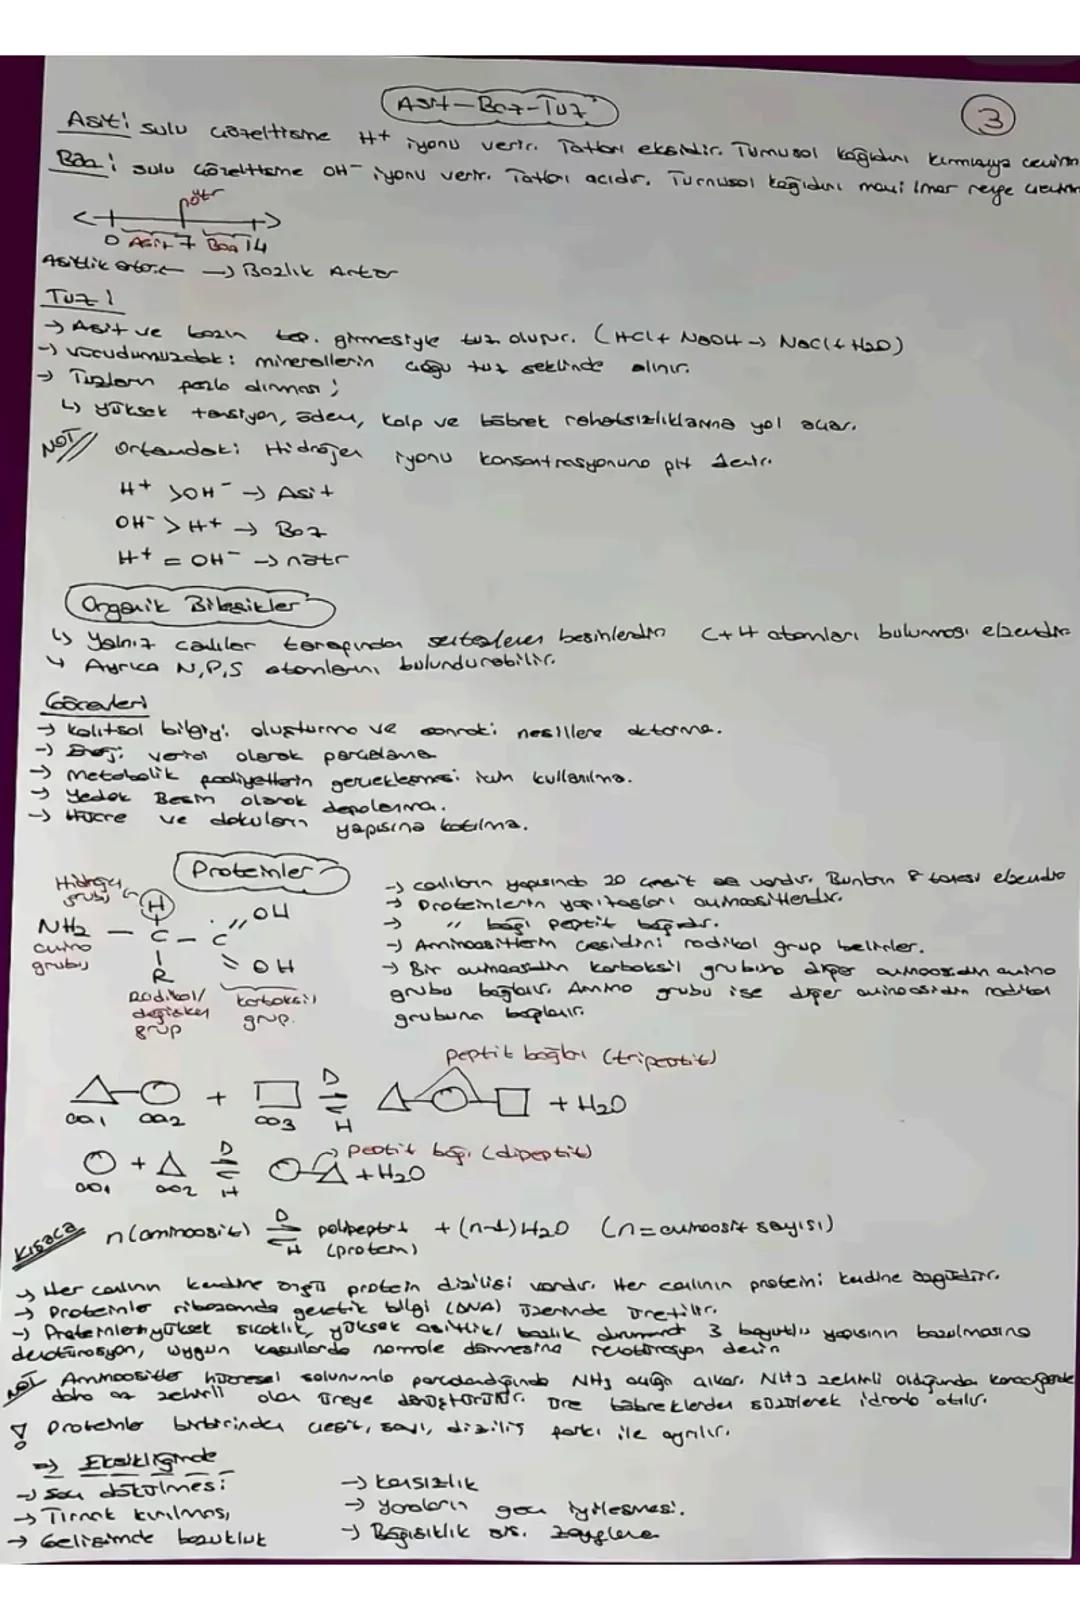 Asit-Baz-Tuz
3
Asit: sulu çözeltisine H+ iyonu verir. Tatları ekşidir. Turnusol kağıdını kırmızıya çevirir
Baz: sulu çözeltisine OH- iyonu verir. Tatları acıdır. Turnusol kağıdını mavi renge çevirir
nötr
0 Asit 7 Baz 14
Asitlik artar ← → Bazlık Artar
Tuz:
→ Asit ve bazın tep. girmesiyle tuz oluşur. (HCl + NaOH → NaCl + H2O)
→ vücudumuzdaki minerallerin çoğu tuz şeklinde alınır.
→ Tuzların fazla alınması;
↳ yüksek tansiyon, ödem, kalp ve böbrek rahatsızlıklarına yol açar.
NOT// Ortamdaki Hidrojen iyonu konsantrasyonuna pH denir.
H+ > OH- → Asit
OH- > H+ → Baz
H+ = OH- → nötr
Organik Bileşikler
↳ Yalnız canlılar tarafından sentezlenen besinlerdir C+H atomları bulunması elzemdir
↳ Ayrıca N,P,S atomlarını bulundurabilir.
Görevleri
→ kalıtsal bilgiyi oluşturma ve sonraki nesillere aktarma.
→ Enerji verici olarak parçalama
→ metabolik faaliyetlerin gerçekleşmesi için kullanılma.
→ Yedek Besin olarak depolanma.
→ Hücre ve dokuların yapısına katılma.
Proteinler
Hidrojen grubu
H
NH2 — C — C
OH
OH
amino grubu
R
Radikal/ değişken grup
karboksil grup.
→ canlıların yapısında 20 çeşit aa vardır. Bunların 8 tanesi elzemdir
→ Proteinlerin yapıtaşları aminoasitlerdir.
→ " bağı peptit bağıdır.
→ Aminoasitlerin çeşidini radikal grup belirler.
→ Bir aminoasidin karboksil grubuna diğer aminoasidin amino
grubu bağlanır. Amino grubu ise diğer aminoasidin radikal
grubuna bağlanır.
peptit bağları (tripeptit)
+ D H + H2O
aa1 aa2 aa3
peptit bağı (dipeptit)
+ D H + H2O
aa1 aa2
Kısaca n(aminoasit) D H polipeptit + (n-1)H2O (n=aminoasit sayısı)
(protein)
→ Her canlının kendine özgü protein dizilişi vardır. Her canlının proteini kendine özgüdür.
→ Proteinler ribozomda genetik bilgi (DNA) üzerinde üretilir.
→ Proteinlerin yüksek sıcaklık, yüksek asitlik/ bazlık durumunda 3 boyutlu yapısının bozulmasına
denatürasyon, uygun koşullarda normale dönmesine renatürasyon denir
NOT Aminoasitler hücresel solunumla parçalandığında NH3 açığa çıkar. NH3 zehirli olduğundan karaciğerde
daha az zehirli olan üreye dönüştürülür. Üre böbreklerden süzülerek idrarla atılır.
! Proteinler birbirinden çeşit, sayı, diziliş farkı ile ayrılır.
⇒ Eksikliğinde
→ saç dökülmesi
→ Tırnak kırılması,
→ Gelişimde bozukluk
→ kansızlık
→ yaraların geç iyileşmesi.
→ Bağışıklık sis. zayıflama